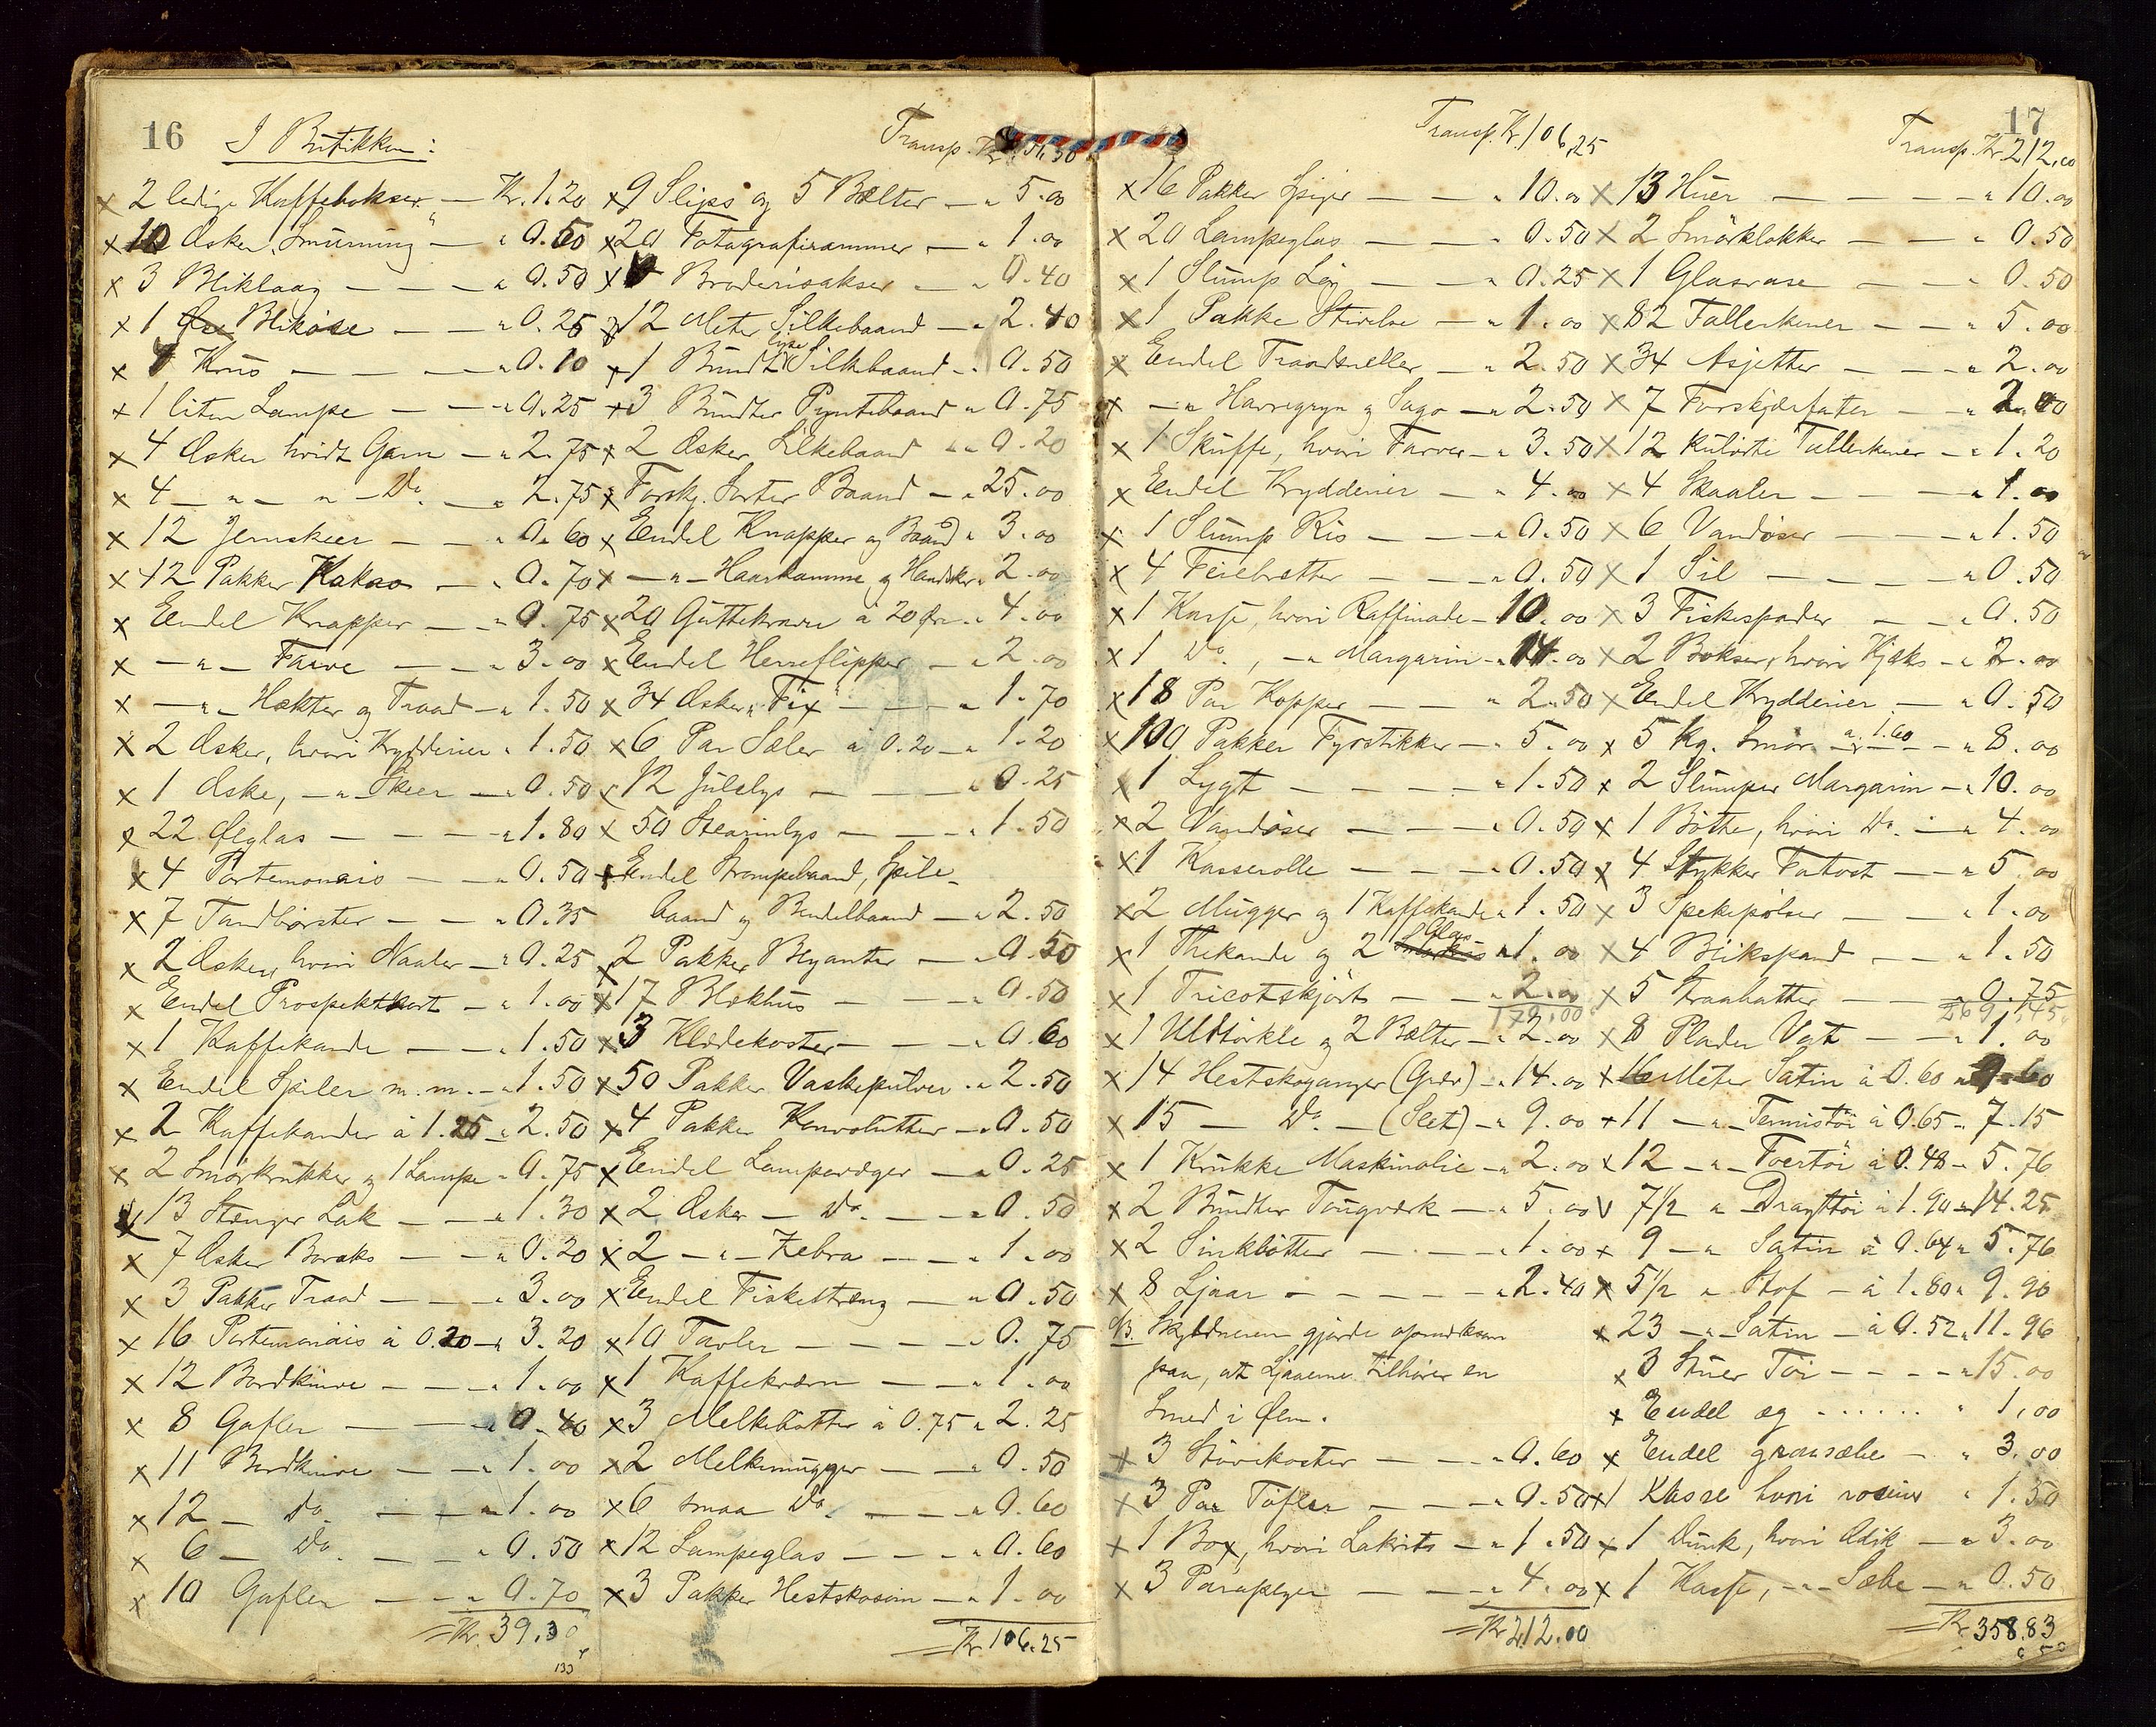 16
I Butikken:
x 2 ledige Kaffebokser — Kr. 1.20
x 10 Æsker „Smurning“ — " 0.50
x 3 Bliklaag — — — " 0.50
x 1 Blikøse — — " 0.25
x Krus — — — " 0.10
x 1 liten Lampe — — " 0.25
x 4 Æsker hvidt Garn — " 2.75
x 4 — " — " — Do. — " 2.75
x 12 Jernskeer — — " 0.60
x 12 Pakker Kakao — " 0.70
x Endel Knapper — " 0.75
x — " — Farve — — " 3.00
x — " — Hækter og Traad — " 1.50
x 2 Æsker, hvori Krydderier " 1.50
x 1 Æske, — " — Skeer — " 0.50
x 22 Ølglas — — — " 1.80
x 4 Portemonais — — " 0.50
x 7 Tandbørster — — " 0.35
x 2 Æsker, hvori Naaler — " 0.25
x Endel Prospektkort — " 1.00
x 1 Kaffekande — — " 1.50
x Endel Spiler m. m. — " 1.50
x 2 Kaffekander à 1.25 " 2.50
x 2 Smørkrukker og 1 Lampe " 0.75
x 13 Stænger Lak — — " 1.30
x 7 Æsker Boraks — — " 0.20
x 3 Pakker Traad — — " 3.00
x 16 Portemonais à 0.20 — " 3.20
x 12 Bordknive — — " 1.00
x 8 Gafler — — " 0.40
x 11 Bordknive — — " 1.00
x 12 — Do. — — " 1.00
x 6 — Do. — — " 0.50
x 10 Gafler — — " 0.70
= Kr. 39.30
Transp. Kr.
x 9 Slips og 5 Bælter — " 5.00
x 20 Fotografirammer — " 1.00
x Broderisakser — " 0.40
x 12 Meter Silkebaand — " 2.40
x 1 Bundt Silkebaand — " 0.50
x 3 Bundter Pyntebaand " 0.75
x 2 Æsker Silkebaand " 0.20
x Forskj. Sorter Baand — " 25.00
x Endel Knapper og Baand " 3.00
x — " — Haarkamme og Handsker " 2.00
x 20 Guttekraver à 20 Øre " 4.00
x Endel Herreflipper — " 2.00
x 34 Æsker „Fix“ — — " 1.70
x 6 Par Sæler à 0.20 — " 1.20
x 12 Julelys — — — " 0.25
x 50 Stearinlys — — " 1.50
x Endel Strømpebaand, Spile-
baand og Bendelbaand — " 2.50
x 2 Pakker Blyanter — " 0.50
x 17 Blækhus — — " 0.50
x 3 Klædekoster — — " 0.60
x 50 Pakker Vaskepulver " 2.50
x 4 Pakker Konvolutter — " 0.50
x Endel Lampevæger — " 0.25
x 2 Æsker — Do. — " 0.50
x 2 — " — Zebra — — " 1.00
x Endel Fiskestræng — " 0.50
x 10 Tavler — — — " 0.75
x 1 Kaffekværn — — " 1.00
x 3 Melkebøtter à 0.75 " 2.25
x 2 Melkemugger — — " 0.50
x 6 smaa Do. — — " 0.60
x 12 Lampeglas — — " 0.60
x 3 Pakker Hestskosøm — " 1.00
= Kr. 106.25
17
Transp. Kr. 106,25
x 16 Pakker Spiger — — " 10.00
x 20 Lampeglas — — " 0.50
x 1 Slump Løg — — " 0.25
x 1 Pakke Stivelse — " 1.00
x Endel Traadsneller — " 2.50
x — " — Havregryn og Sago — " 2.50
x 1 Skuffe, hvori Farver — " 3.50
x Endel Krydderier — " 4.00
x 1 Slump Ris — — " 0.50
x 4 Feiebretter — — " 0.50
x 1 Kasse, hvori Raffinade — 10.00
x 1 Do., — " — Margarin — " 14.00
x 18 Par Kopper — — " 2.50
x 100 Pakker Fyrstikker — " 5.00
x 1 Lygt — — — — " 1.50
x 2 Vandøser — — " 0.50
x 1 Kasserolle — — " 0.50
x 2 Mugger og 1 Kaffekande " 1.50
x 1 Thekande og 2 Glas " 1.00
x 1 Tricotskjørt — — " 2.00
179.00
x 1 Uldtørkle og 2 Bælter — " 2.00
x 14 Hestskoganger (Grov) — " 14.00
x 15 — Do. — (Slet) — " 9.00
x 1 Krukke Maskinolie — " 2.00
x 2 Bundter Tougværk — " 5.00
x 2 Sinkbøtter — — " 1.00
x 8 Ljaar — — — — " 2.40
NB. Skyldneren gjorde opmerksom
paa, at Ljaaerne tilhører en
Smed i Ølen.
x 3 Støvekoster — — " 0.60
x 3 Par Tøfler — — " 0.50
x 1 Box, hvori Lakrits — " 1.50
x 3 Paraplyer — — " 4.00
= Kr 212.00
Transp. Kr. 212,00
x 13 Huer — — — " 10.00
x 2 Smørklokker — — " 0.50
x 1 Glasvase — — " 0.50
x 82 Tallerkener — — " 5.00
x 34 Asjetter — — " 2.00
x 7 Forskjærfater — — " 2.00
x 12 kulørte Tallerkener — " 1.20
x 4 Skaaler — — — " 1.00
x 6 Vandøser — — " 1.50
x 1 Sil — — — — " 0.50
x 3 Fiskespader — — " 0.50
x 2 Bokser, hvori Kjæks — " 2.00
x Endel Krydderier — " 0.50
x 5 Kg. Smør à 1.60 — " 8.00
x 2 Slumper Margarin — " 10.00
x 1 Bøtte, hvori Do. — " 4.00
x 4 Stykker Fatost — — " 5.00
x 3 Spekepølser — — " 1.00
x 4 Blikspand — — " 1.50
x 5 Straahatter — — " 0.75
269,45
x 8 Plader Vat — — " 1.00
x 16 Meter Satin à 0.60 " 9.60
x 11 — " — Tennistøi à 0.65 " 7.15
x 12 — " — Foertøi à 0.48 " 5.76
v 7½ " — Dragttøi à 1.90 " 14.25
x 9 — " Satin à 0.64 " 5.76
x 5½ " Stof — à 1.80 " 9.90
x 23 — " — Satin — à 0.52 " 11.96
x 3 Stuer Tøi — — — " 15.00
x Endel æg . . . . . . " 1,00
x Endel grønsæbe — " 3.00
x 1 Kasse hvori rosiner " 1.50
x 1 Dunk, hvori Edik — " 3.00
x 1 Kasse, — " — Sæbe — " 0.50
= Kr. 358.83